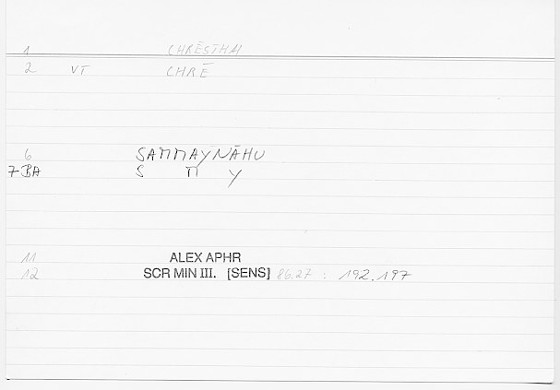 1 CHRĒSTHAI
2 VT CHRĒ
6 SAMMAYNĀHU
7-BA S M Y
11 ALEX APHR
12 SCR MIN III. [SENS] 86.27 : 192.197